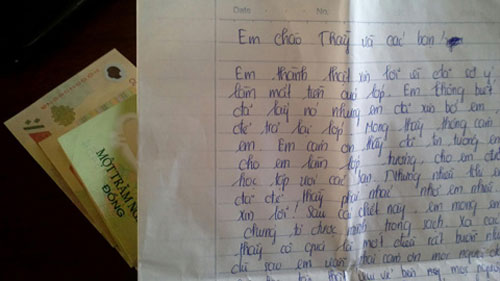 Date No.
Em chào Thầy và các bạn!
Em thành thật xin lỗi vì đã sơ ý
làm mất tiền quỹ lớp. Em không biết
đã lấy nó nhưng em đã xin bố em
để trả lại lớp. Mong thầy thông cảm
em. Em cảm ơn thầy đã tin tưởng em
cho em làm lớp trưởng, cho em
học tập với các bạn. Nhưng nhiều khi em
đã để thầy phải nhắc nhở em nhiều
xin lỗi! Sau cái chết này, em mong
chứng tỏ được mình trong sạch. Xa các
thầy cô quả là một điều rất buồn
dù sao em cảm ơn mọi người
thầy vui vẻ
MỘT TRĂM
ĐỒNG